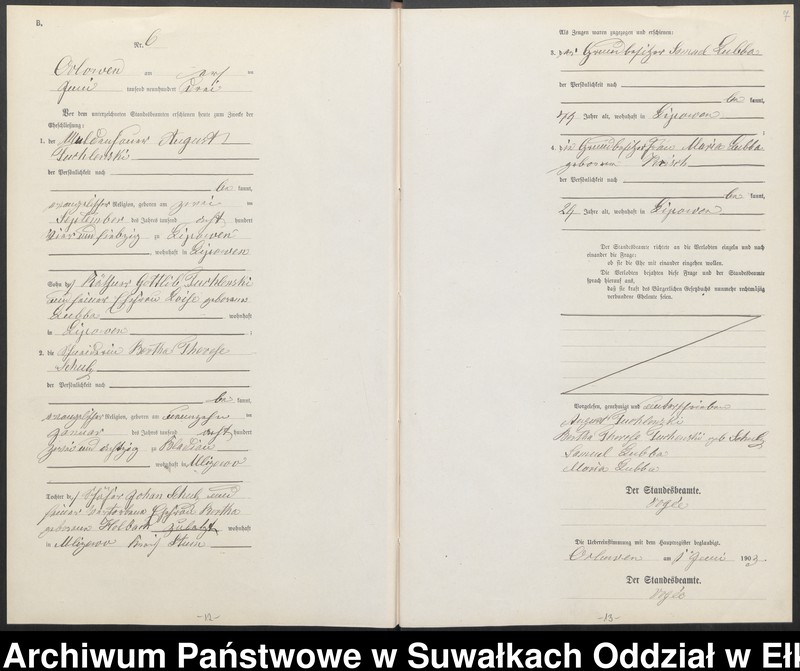 B.
Nr. 6
Orlowen am acht ten
Juni tausend neunhundert drei
Vor dem unterzeichneten Standesbeamten erschienen heute zum Zwecke der
Eheschließung:
1. der August
Tuchlenski
der Persönlichkeit nach
be kannt,
evangelischer Religion, geboren am zwei ten
September des Jahres tausend acht hundert
vier und siebzig zu Lipowen
, wohnhaft in Lipowen
Sohn des Käthner Gottlieb Tuchlenski
und seiner Ehefrau Loise geborene
Lubba wohnhaft
in Lipowen ;
2. die Bertha Therese
Schulz
der Persönlichkeit nach
be kannt,
evangelischer Religion, geboren am neunzehn ten
Januar des Jahres tausend acht hundert
zwei und achtzig zu
wohnhaft in
Tochter des Schäfer Johan Schulz und
seiner verstorbene Ehefrau Bertha
geborene zuletzt wohnhaft
in
-12-
7
Als Zeugen waren zugezogen und erschienen:
3. der Grundbesitzer Lubba
der Persönlichkeit nach
be kannt,
Jahre alt, wohnhaft in Lipowen
;
4. die Grundbesitzerfrau Maria Lubba
geborene
der Persönlichkeit nach
be kannt,
24 Jahre alt, wohnhaft in Lipowen
Der Standesbeamte richtete an die Verlobten einzeln und nach
einander die Frage:
ob sie die Ehe mit einander eingehen wollen.
Die Verlobten bejahten diese Frage und der Standesbeamte
sprach hierauf aus,
daß sie kraft des Bürgerlichen Gesetzbuchs nunmehr rechtmäßig
verbundene Eheleute seien.
Vorgelesen, genehmigt und unterschrieben
August Tuchlinski
Bertha Therese Tuchenski geb Schulz
Samuel Lubba
Maria Lubba
Der Standesbeamte.
Die Uebereinstimmung mit dem Hauptregister beglaubigt.
Orlowen am Juni 1903.
Der Standesbeamte.
-13-
Archiwum Państwowe w Suwałkach Oddział w Eł